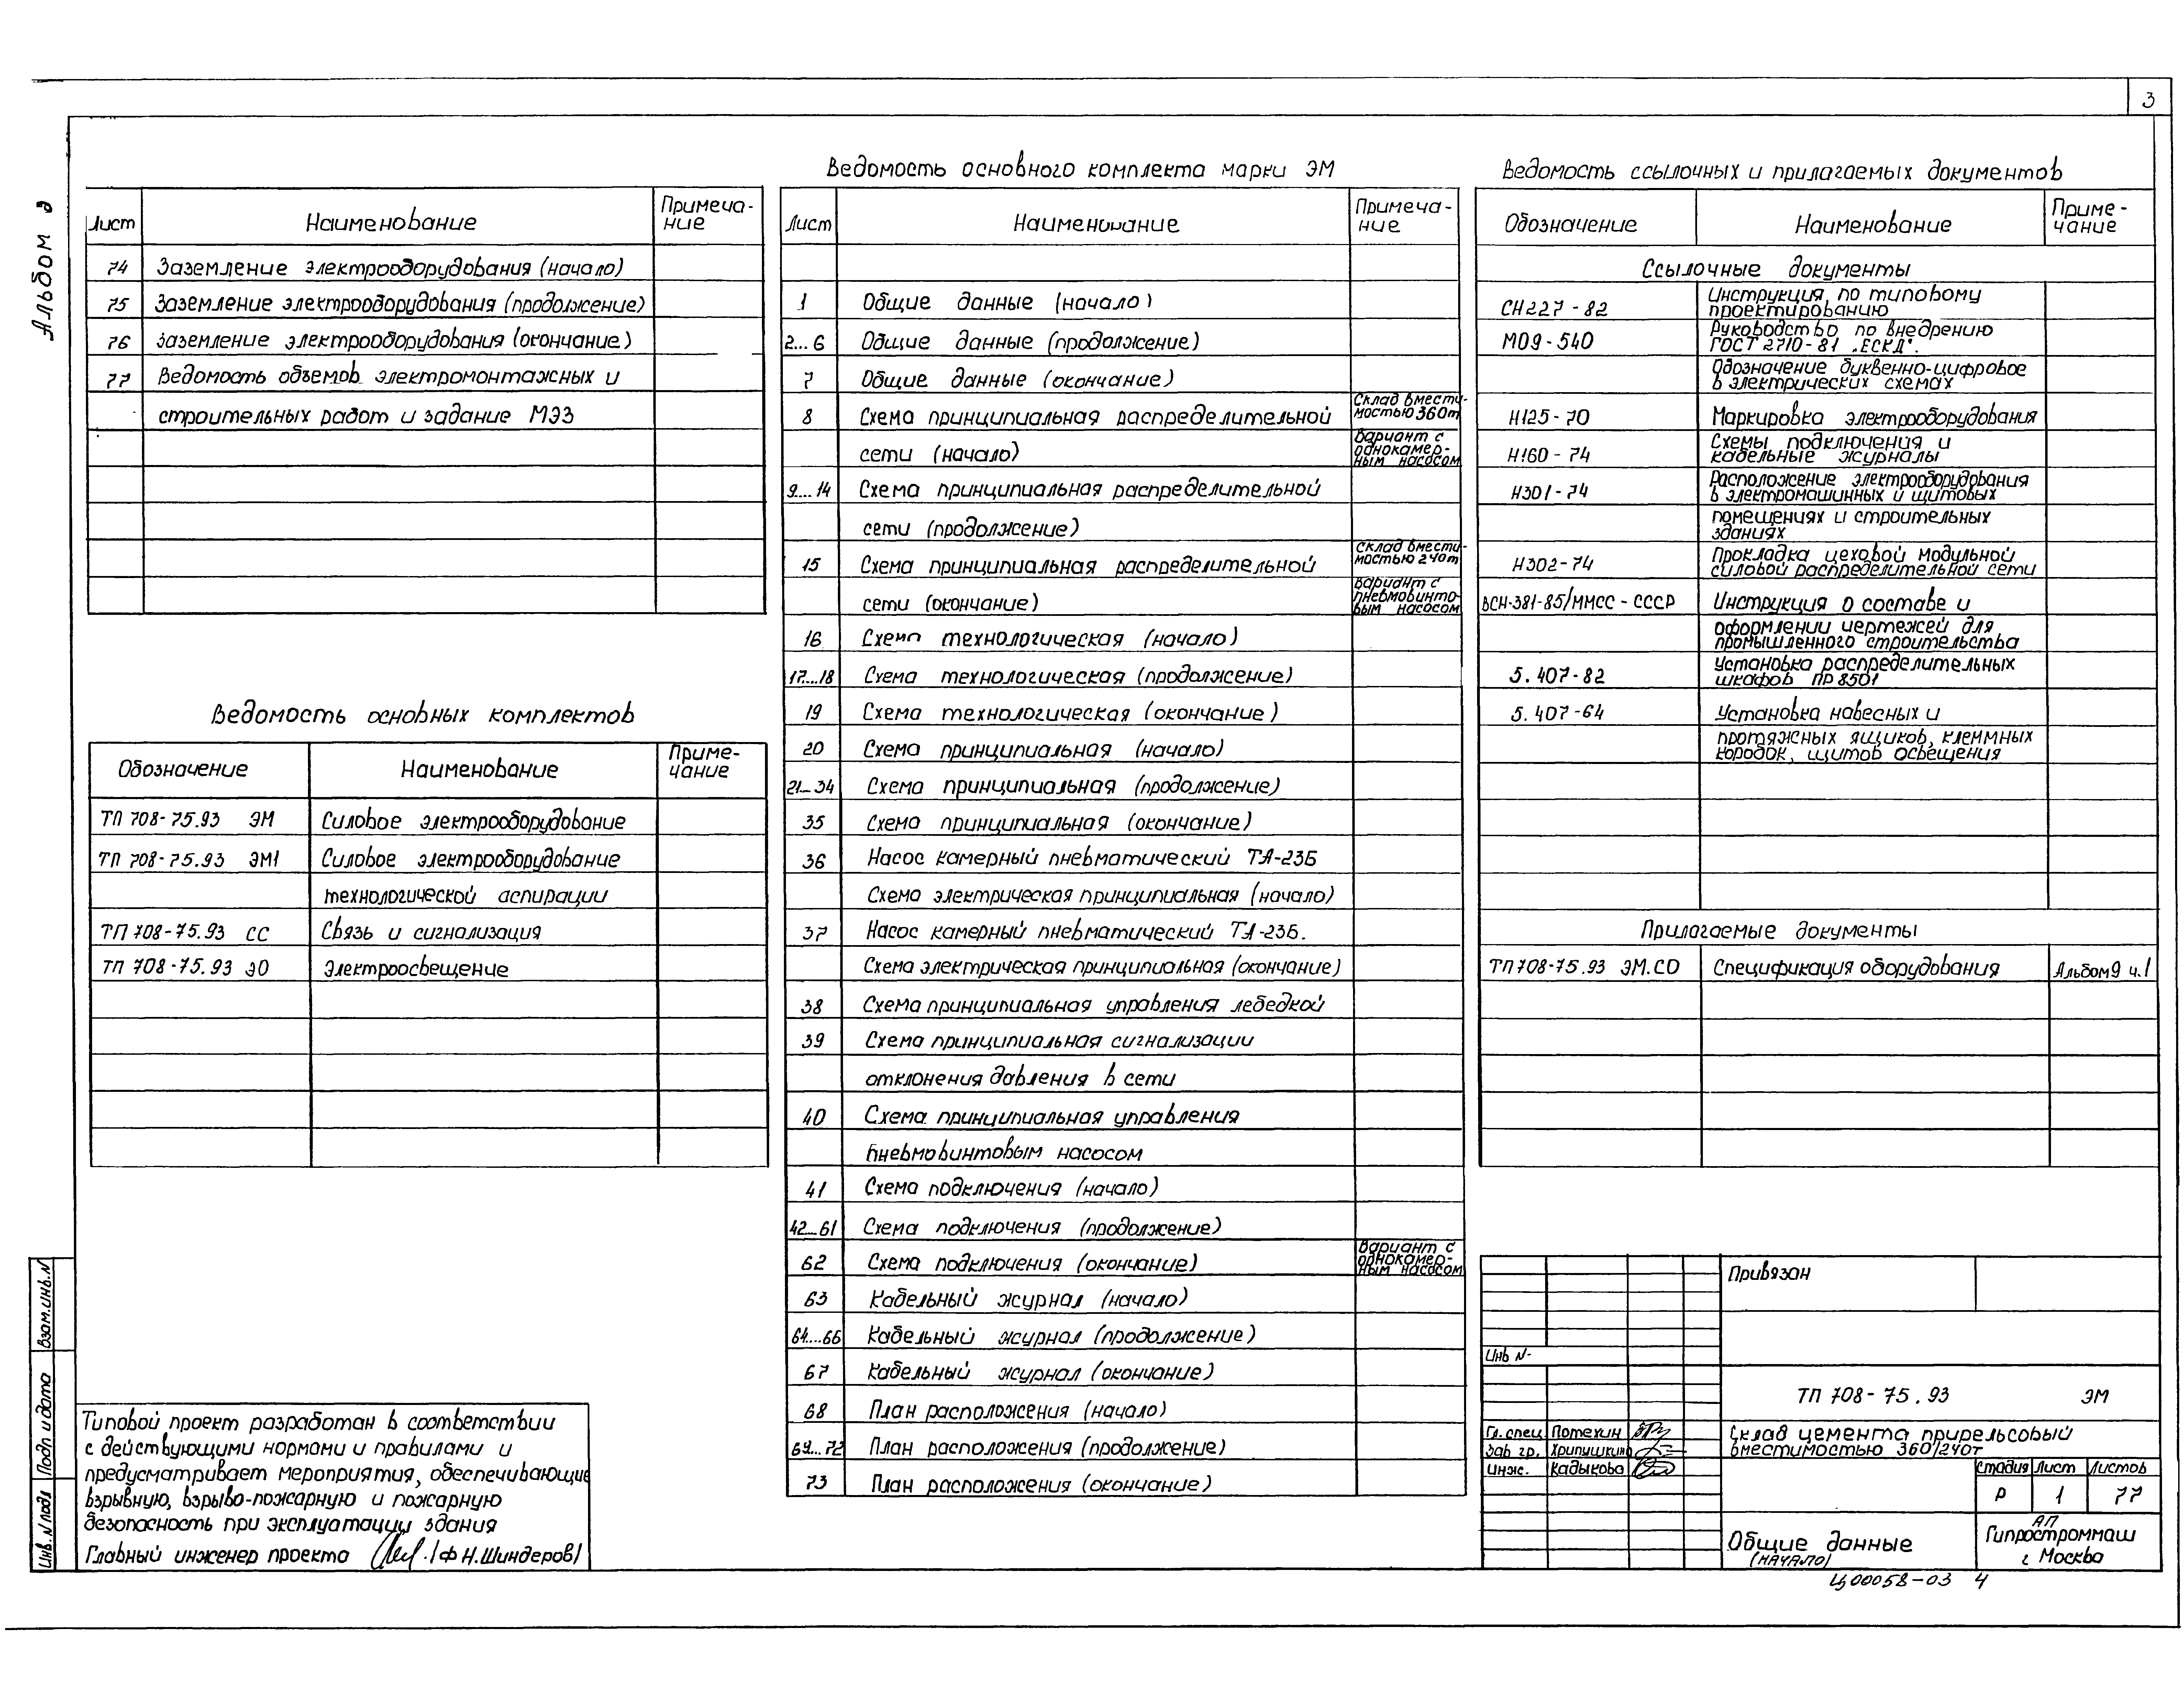 3
Альбом 2
Лист Наименование Примеча-
ние
74 Заземление электрооборудования (начало)
75 Заземление электрооборудования (продолжение)
76 Заземление электрооборудования (окончание)
77 Ведомость объемов электромонтажных и
строительных работ и задание МЭЗ
Ведомость основных комплектов
Обозначение Наименование Приме-
чание
ТП 708-75.93 ЭМ Силовое электрооборудование
ТП 708-75.93 ЭМ1 Силовое электрооборудование
технологической аспирации
ТП 708-75.93 СС Связь и сигнализация
ТП 708-75.93 ЭО Электроосвещение
Типовой проект разработан в соответствии
с действующими нормами и правилами и
предусматривает мероприятия, обеспечивающие
взрывную, взрыво-пожарную и пожарную
безопасность при эксплуатации здания
Главный инженер проекта (Ф Н.Шиндеров)
Взам.инв.N
Подп и дата
Инв. N подл
Ведомость основного комплекта марки ЭМ
Лист Наименование Примеча-
ние
1 Общие данные (начало)
2...6 Общие данные (продолжение)
7 Общие данные (окончание)
8 Схема принципиальная распределительной Склад вмести-
мостью 360т
сети (начало) Вариант с
однокамер-
ным насосом
9...14 Схема принципиальная распределительной
сети (продолжение)
15 Схема принципиальная распределительной Склад вмести-
мостью 240т
сети (окончание) Вариант с
пневмовинто-
вым насосом
16 Схема технологическая (начало)
17...18 Схема технологическая (продолжение)
19 Схема технологическая (окончание)
20 Схема принципиальная (начало)
21...34 Схема принципиальная (продолжение)
35 Схема принципиальная (окончание)
36 Насос камерный пневматический ТА-23Б
Схема электрическая принципиальная (начало)
37 Насос камерный пневматический ТА-23Б.
Схема электрическая принципиальная (окончание)
38 Схема принципиальная управления лебедкой
39 Схема принципиальная сигнализации
отклонения давления в сети
40 Схема принципиальная управления
пневмовинтовым насосом
41 Схема подключения (начало)
42...61 Схема подключения (продолжение)
62 Схема подключения (окончание) Вариант с
однокамер-
ным насосом
63 Кабельный журнал (начало)
64...66 Кабельный журнал (продолжение)
67 Кабельный журнал (окончание)
68 План расположения (начало)
69...72 План расположения (продолжение)
73 План расположения (окончание)
Ведомость ссылочных и прилагаемых документов
Обозначение Наименование Приме-
чание
Ссылочные документы
СН227-82 Инструкция по типовому
проектированию
М09-540 Руководство по внедрению
ГОСТ 2710-81 „ЕСКД".
Обозначение буквенно-цифровое
в электрических схемах
Н125-70 Маркировка электрооборудования
Н160-74 Схемы подключения и
кабельные журналы
Н301-74 Расположение электрооборудования
в электромашинных и щитовых
помещениях и строительных
зданиях
Н302-74 Прокладка цеховой модульной
силовой распределительной сети
ВСН-381-85/ММСС-СССР Инструкция о составе и
оформлении чертежей для
промышленного строительства
5.407-82 Установка распределительных
шкафов ПР 8501
5.407-64 Установка навесных и
протяжных ящиков, клеммных
коробок, щитов освещения
Прилагаемые документы
ТП 708-75.93 ЭМ.СО Спецификация оборудования Альбом 9 ч.1
Привязан
Инв N-
ТП 708-75.93 ЭМ
Гл. спец Потехин
Зав гр. Хрипушкина
Инж. Кадыкова
Склад цемента прирельсовый
вместимостью 360/240т
Стадия Лист Листов
Р 1 77
Общие данные
(НАЧАЛО)
АП
Гипростроммаш
г Москва
Ц00058-03 4